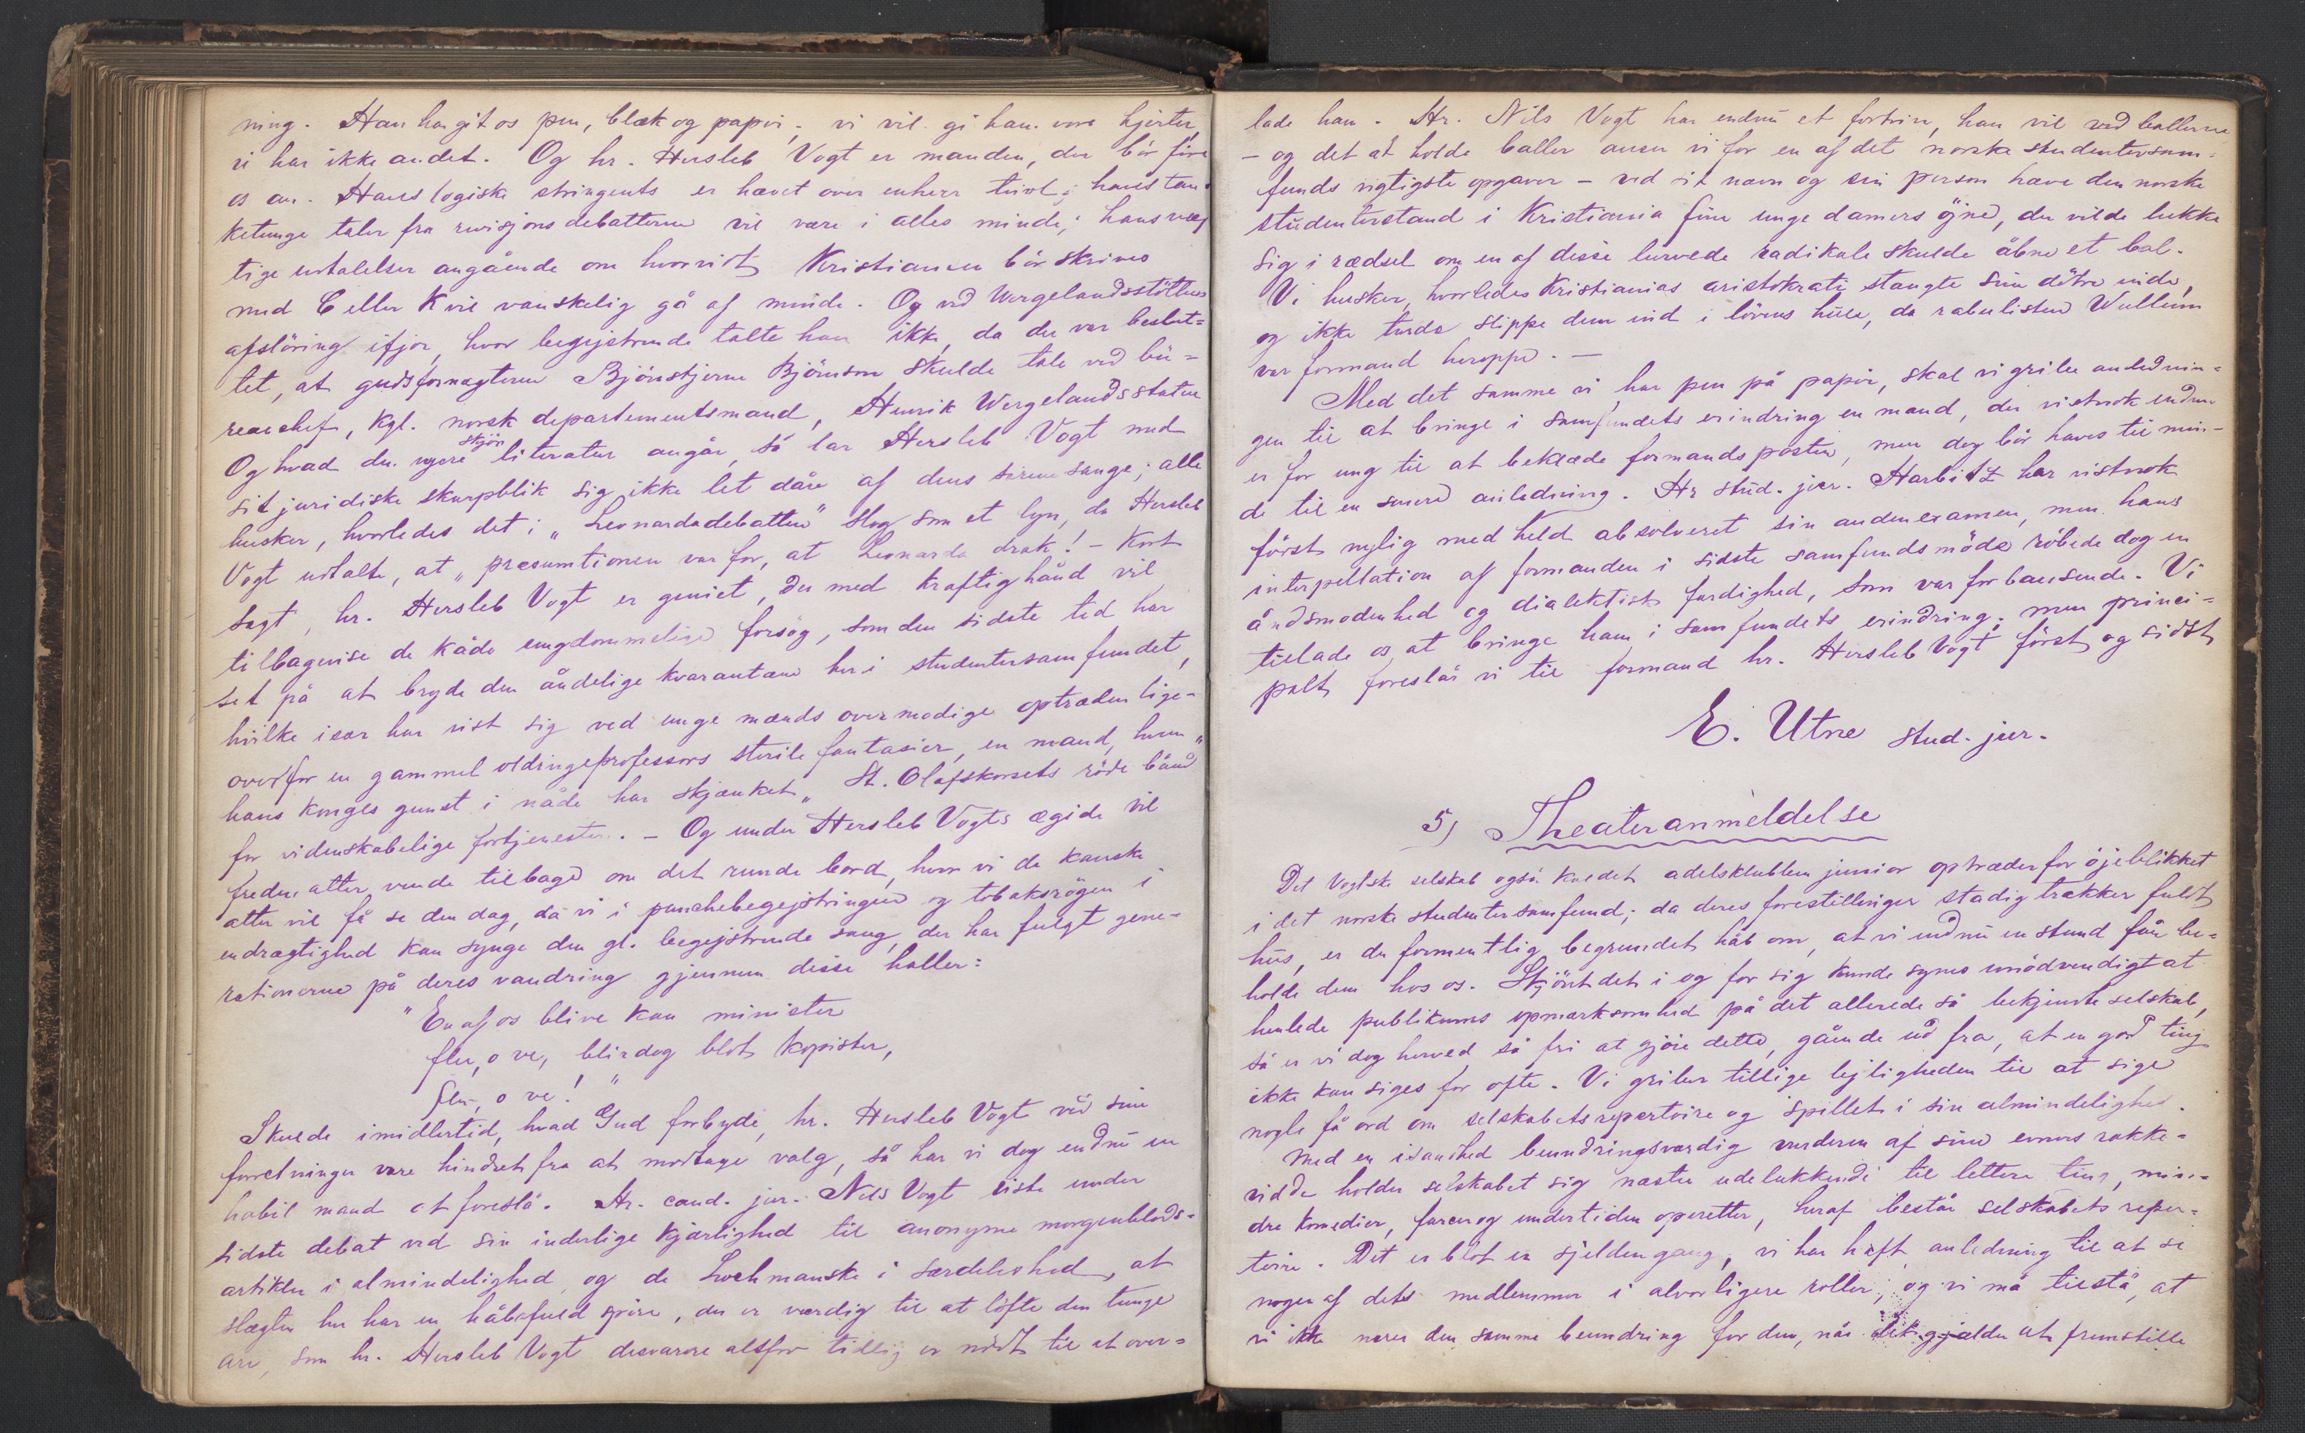 ning. Han har git os pen, blæk og papir; vi vil gi ham vore hjerter,
vi har ikke andet. Og hr. Hersleb Vogt er manden, der bör före
os an. Hans logiske stringents er hævet over enhver tvivl; hans tan-
ketunge taler fra revisjonsdebatterne vil være i alles minde; hans væg-
tige udtalelser angående om hvorvidt Kristiania bör skrives
med C eller K vil vanskelig gå af minde. Og ved Wergelandsstöttens
afslöring ifjor, hvor begejstrende talte han ikke, da der var beslut-
tet, at gudsfornægteren Björnstjerne Björnson skulde tale ved bü-
reauchef, kgl. norsk departementsmand, Henrik Wergelands statue
Og hvad den nyere skjön literatur angår, så lar Hersleb Vogt med
sit juridiske skarpblik sig ikke let dåre af dens sirenesange; alle
husker, hvorledes det i „Leonardadebatten" slog som et lyn, da Hersleb
Vogt udtalte, at „præsumtionen var for, at Leonarda drak! - Kort
sagt, hr. Hersleb Vogt er geniet, der med kraftig hånd vil
tilbagevise de kåde ungdommelige forsög, som den sidste tid har
set på at bryde den åndelige kvarantæne her i studentersamfundet,
hvilke især har vist sig ved unge mænds overmodige optræden lige-
overfor en gammel oldringeprofessors sterile fantasier, en mand, hvem
hans konges gunst i nåde har skjænket „St. Olafskorsets röde bånd"
for videnskabelige fortjenester. - Og under Hersleb Vogts ægide vil
freden atter vende tilbage om det runde bord, hvor vi da kanske
atter vil få se den dag, da vi i punchebegejstringen og tobaksrögen i
endrægtighed kan synge den gl. begejstrende sang, der har fulgt gene-
rationerne på deres vandring gjennem disse haller:
"En af os blive kan minister
fler, o ve, blir dog blot kopister,
fler, o ve!"
Skulde imidlertid, hvad Gud forbyde, hr. Hersleb Vogt ved sine
forretninger være hindret fra at modtage valg, så har vi dog endnu en
habil mand at foreslå. Hr. cand. jur. Nils Vogt viste under
sidste debat ved sin inderlige kjærlighed til anonyme morgenblads-
artikler i almindelighed, og de Lochmanske i særdeleshed, at
slægten her har en håbefuld spire, der er værdig til at löfte den tunge
arv, som hr. Hersleb Vogt desværre altfor tidlig er nödt til at over-
lade ham. Hr. Nils Vogt har endnu et fortrin, han vil ved ballerne
- og det at holde baller anser vi for en af det norske studentersam-
funds vigtigste opgaver - ved sit navn og sin person hæve den norske
studenterstand i Kristiania fine unge damers öjne, der vilde lukke
sig i rædsel om en af disse lurvede radikale skulde åbne et bal.
Vi husker, hvorledes Kristianias aristokrati stængte sine dötre inde,
og ikke turde slippe dem ind i lövens hule, da rabulisten Wullum
var formand heroppe. —
Med det samme vi har pen på papir, skal vi gribe anlednin-
gen til at bringe i samfundets erindring en mand, der vistnok endnu
er for ung til at beklæde formandsposten, men dog bör haves til min-
de til en senere anledning. Hr stud. jur. Harbitz har vistnok
först nylig med held absolveret sin andenexamen, men hans
interpellation af formanden i sidste samfundsmöde röbede dog en
åndsmodenhed og dialektisk færdighed, som var forbausende. Vi
tillade os at bringe ham i samfundets erindring; men princi-
palt foreslår vi til formand hr. Hersleb Vogt först og sidst
E. Utne stud. jur.
5) Theateranmeldelse
Det Vogtske selskab også kaldet adelsklubben junior optræder for öjeblikket
i det norske studentersamfund; da deres forestillinger stadig trækker fuldt
hus, er der formentlig begrundet håb om, at vi endnu en stund får be-
holde dem hos os. Skjönt det i og for sig kunde synes unödvendigt at
henlede publikums opmærksomhed på det allerede så bekjendte selskab,
så er vi dog herved så fri at gjöre dette, gående ud fra, at en god ting
ikke kan siges for ofte. Vi griber tillige lejligheden til at sige
nogle få ord om selskabets repertoire og spillet i sin almindelighed.
Med en i sandhed beundringsværdig vurderen af sine evners række-
vidde holder selskabet sig næsten udelukkende til lettere ting, min-
dre komedier, farcer og undertiden operetter, heraf består selskabets reper-
toire. Det er blot en sjelden gang, vi har haft anledning til at se
nogen af dets medlemmer i alvorligere roller; og vi må tilstå, at
vi ikke nærer den samme beundring for dem, når det gjælder at fremstille